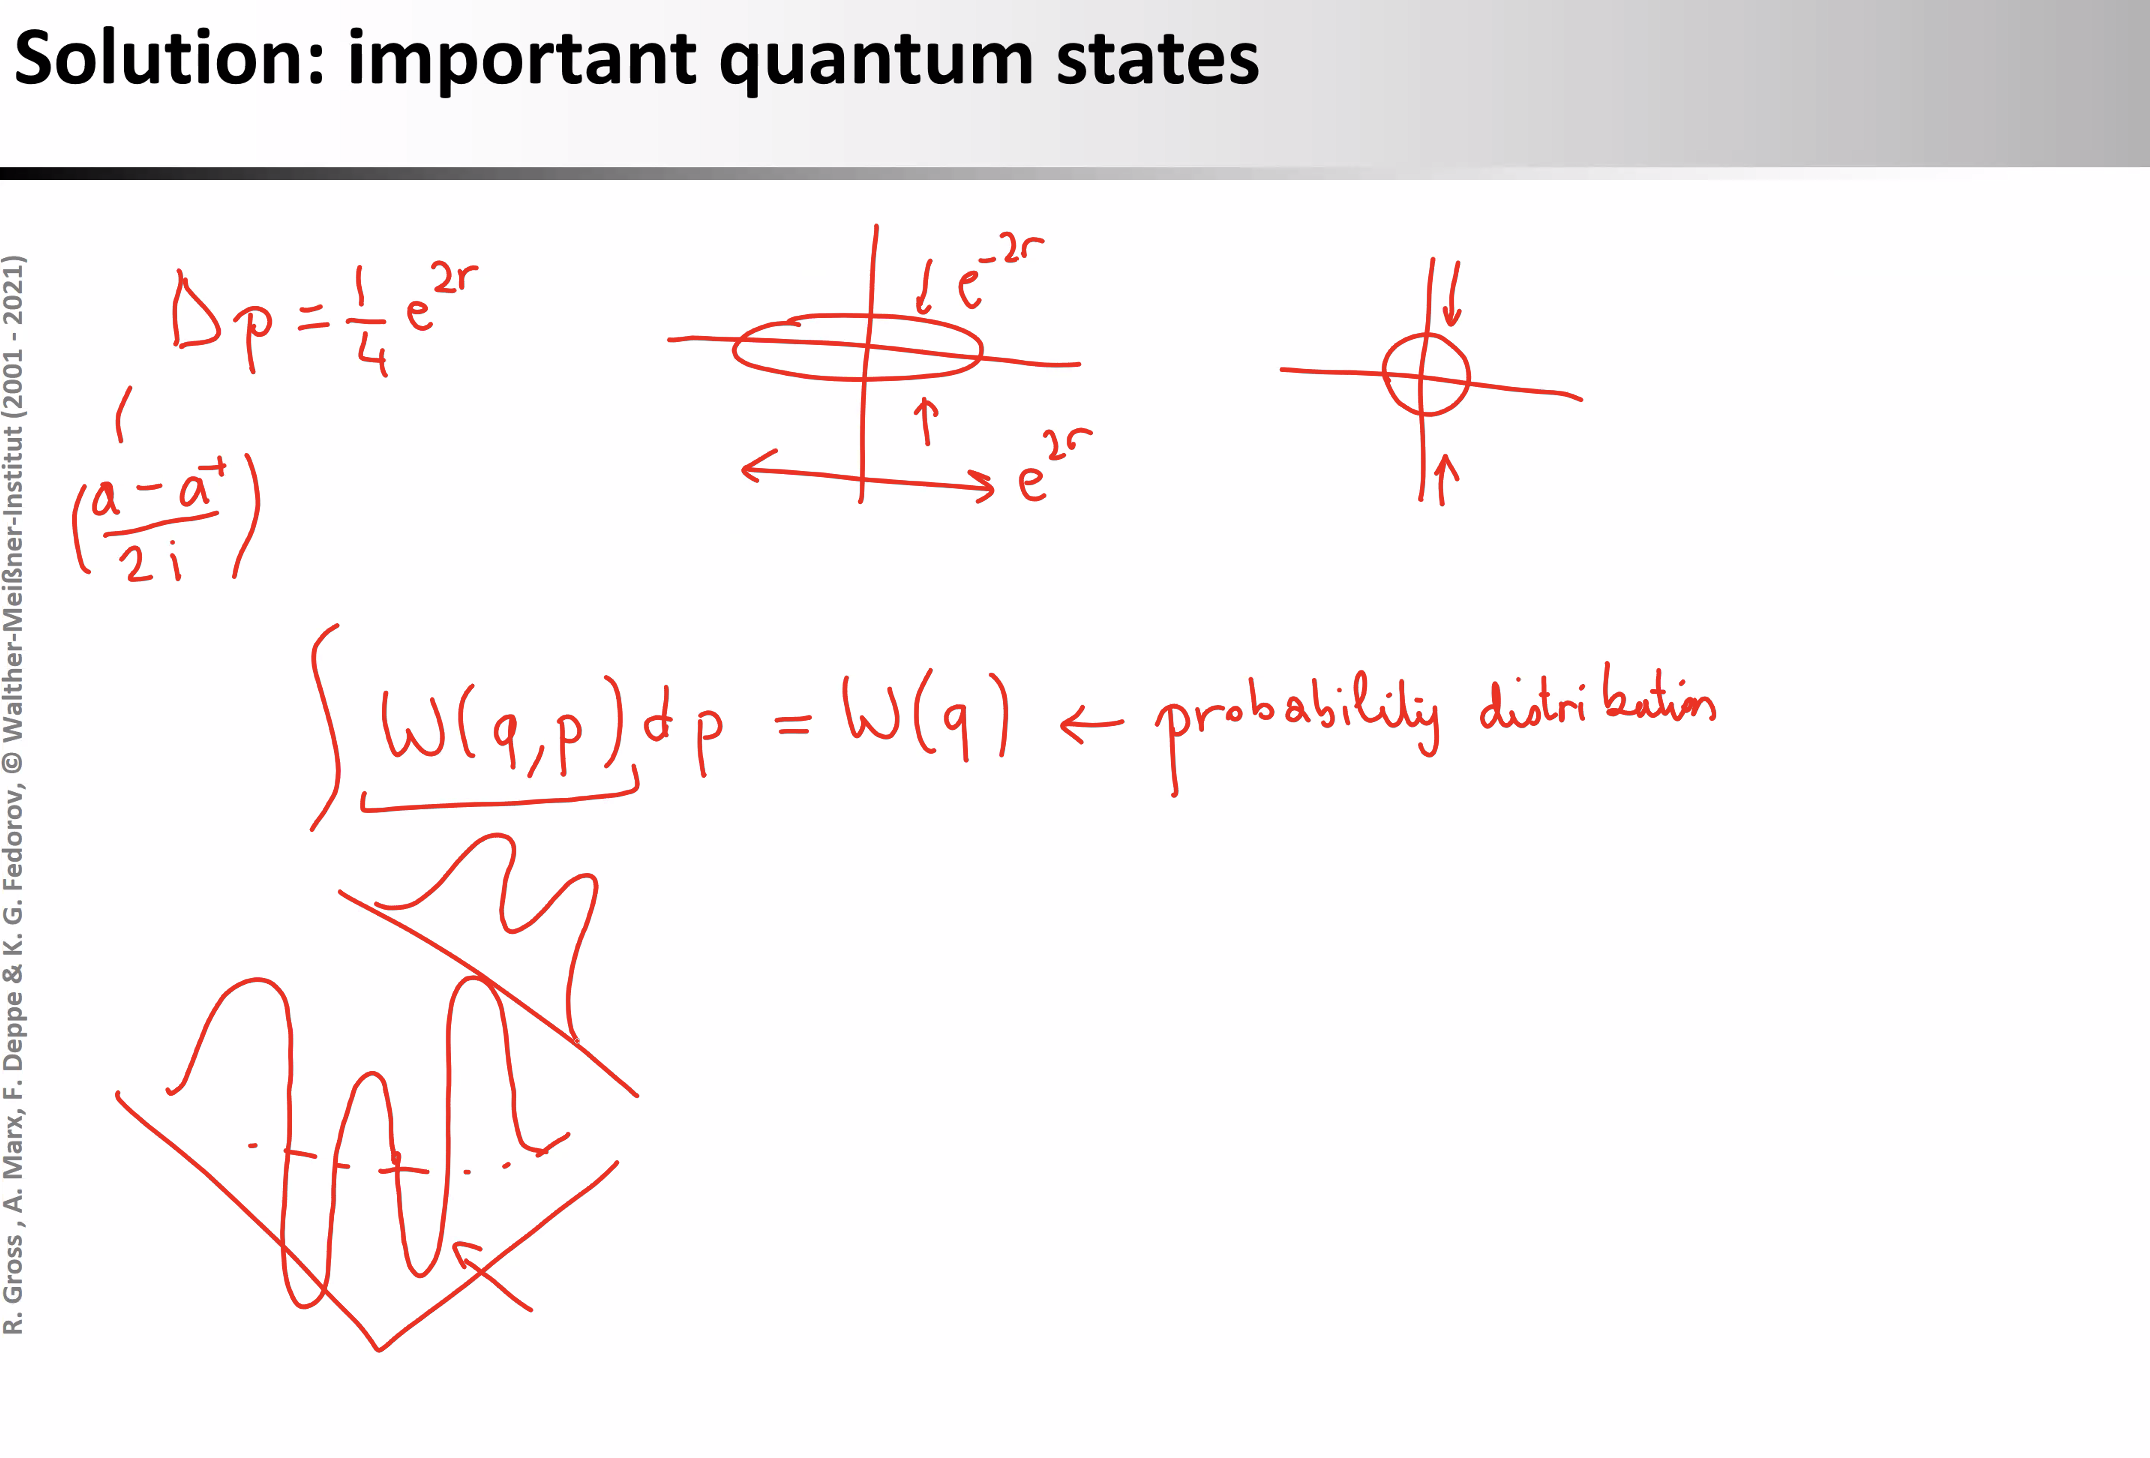 Solution: important quantum states
R. Gross , A. Marx, F. Deppe & K. G. Fedorov, © Walther-Meißner-Institut (2001 - 2021)
Δp = 1/4 e^2r
e^-2r
e^2r
(a - a^+ / 2i)
∫ W(q,p) dp = W(q) ← probability distribution